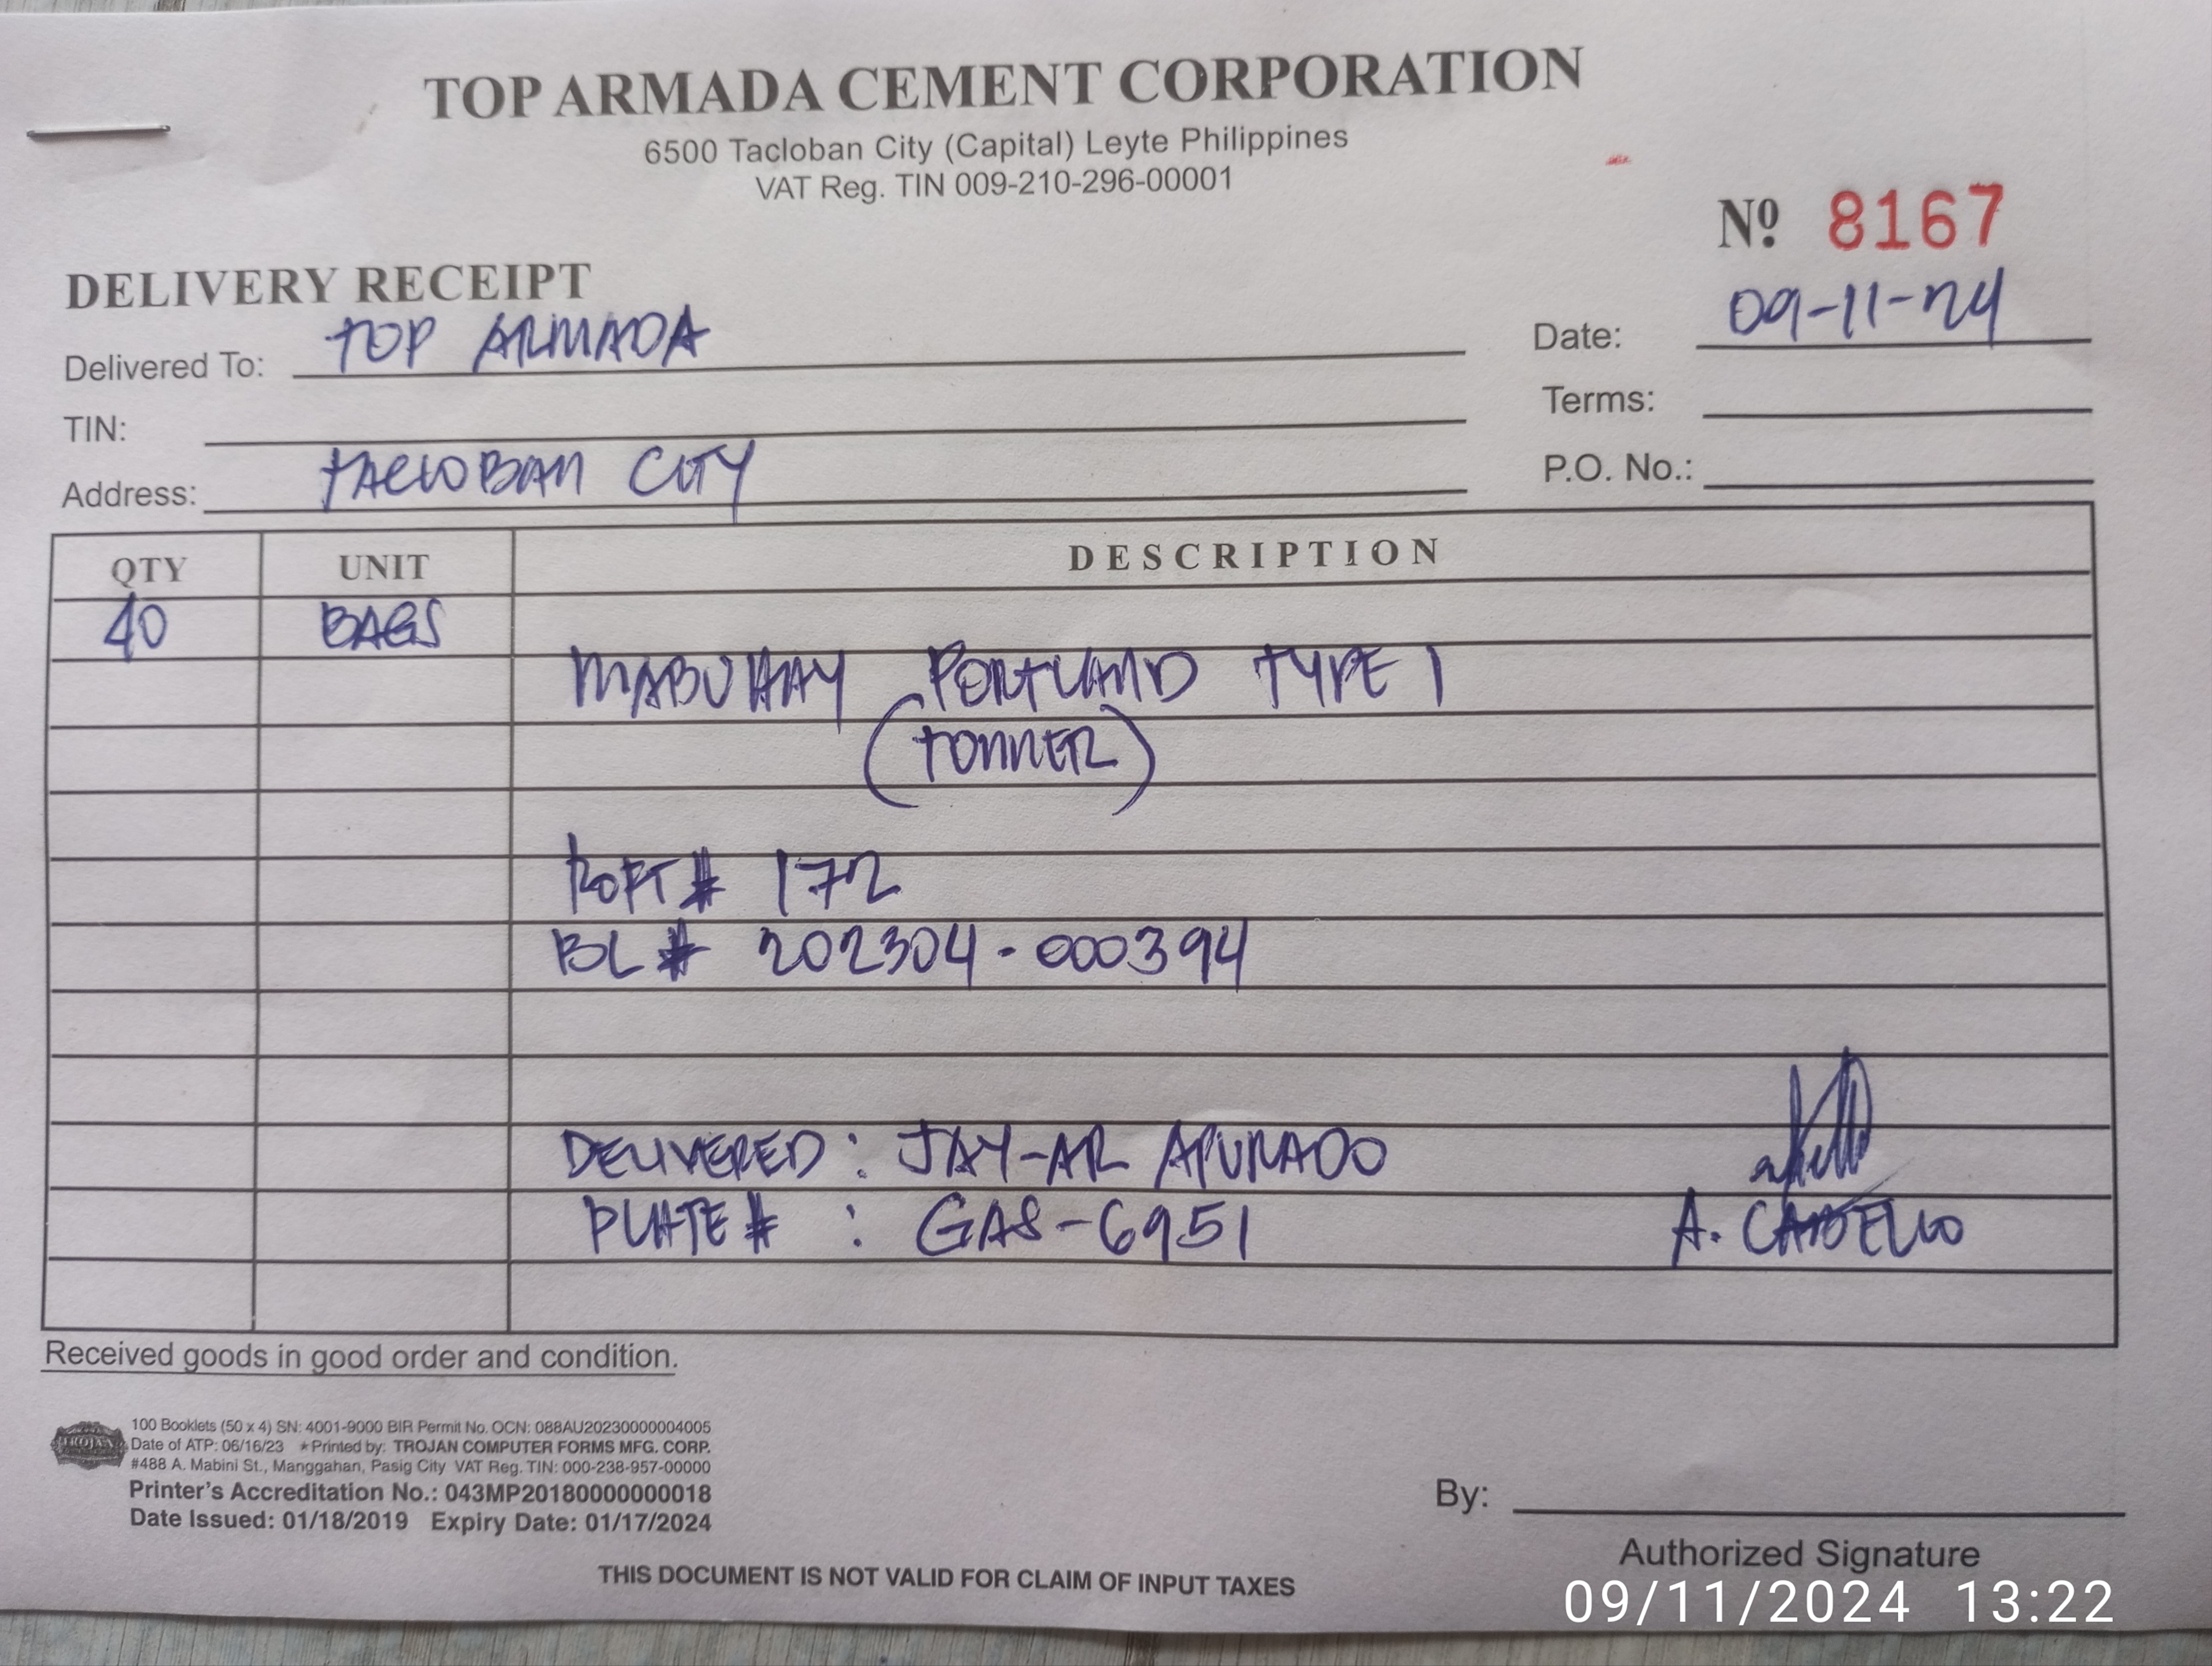 TOP ARMADA CEMENT CORPORATION
6500 Tacloban City (Capital) Leyte Philippines
VAT Reg. TIN 009-210-296-00001
Nº 8167
DELIVERY RECEIPT
Delivered To: TOP ARMADA
Date: 09-11-24
TIN:
Terms:
Address: TACLOBAN CITY
P.O. No.:
QTY UNIT DESCRIPTION
40 BAGS
MABUHAY PORTLAND TYPE 1
(TONNER)
# 172
BL# 202304-000394
DELIVERED: JAY-AR APURADO
PLATE# : GAS-6951
A.
Received goods in good order and condition.
TROJAN
100 Booklets (50 x 4) SN: 4001-9000 BIR Permit No. OCN: 088AU20230000004005
Date of ATP: 06/16/23 ★Printed by: TROJAN COMPUTER FORMS MFG. CORP.
#488 A. Mabini St., Manggahan, Pasig City VAT Reg. TIN: 000-238-957-00000
Printer's Accreditation No.: 043MP20180000000018
Date Issued: 01/18/2019 Expiry Date: 01/17/2024
By:
Authorized Signature
THIS DOCUMENT IS NOT VALID FOR CLAIM OF INPUT TAXES
09/11/2024 13:22